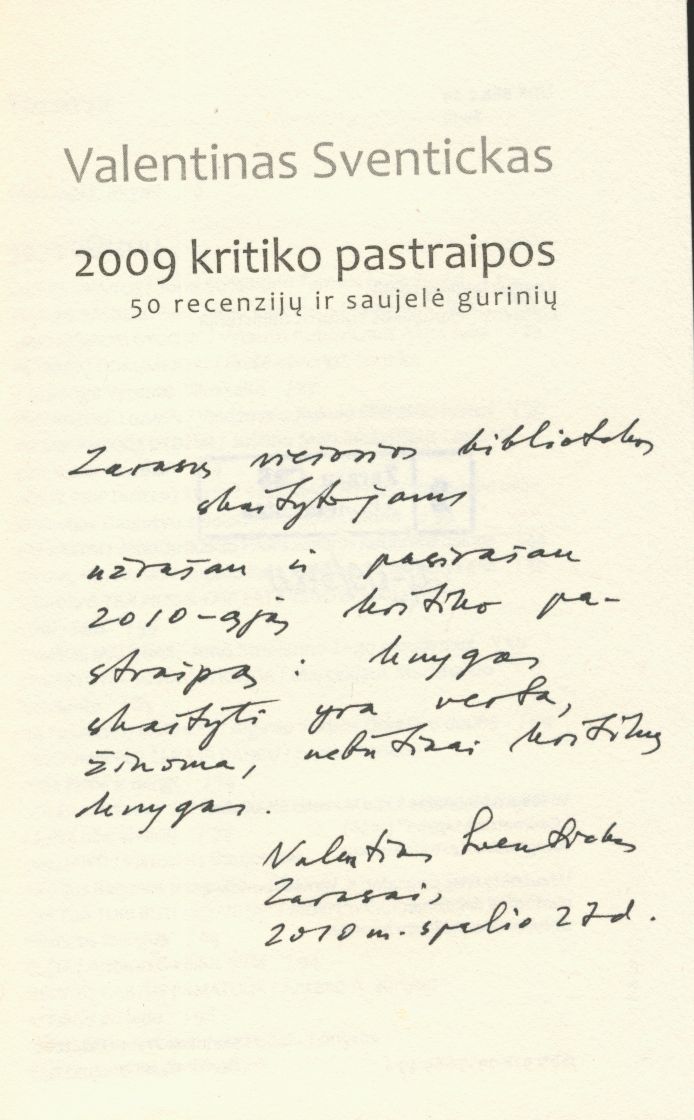 Valentinas Sventickas
2009 kritiko pastraipos
50 recenzijų ir saujelė gurinių
Zarasų viešosios bibliotekos
skaitytojams
užrašau ir pasirašau
2010-ąją kritiko pa-
straipą: knygas
skaityti yra verta,
žinoma, nebūtinai kritikų
knygas.
Valentinas Sventickas
Zarasai,
2010 m. spalio 27 d.